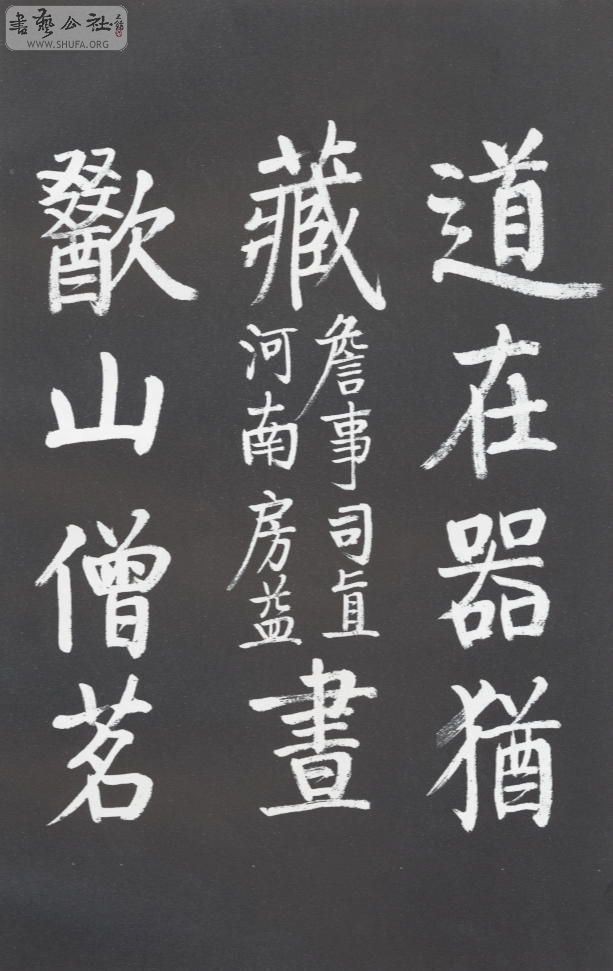 書藝公社
WWW.SHUFA.ORG
道在器猶
藏
詹事司直
河南房益
晝
歠山僧茗